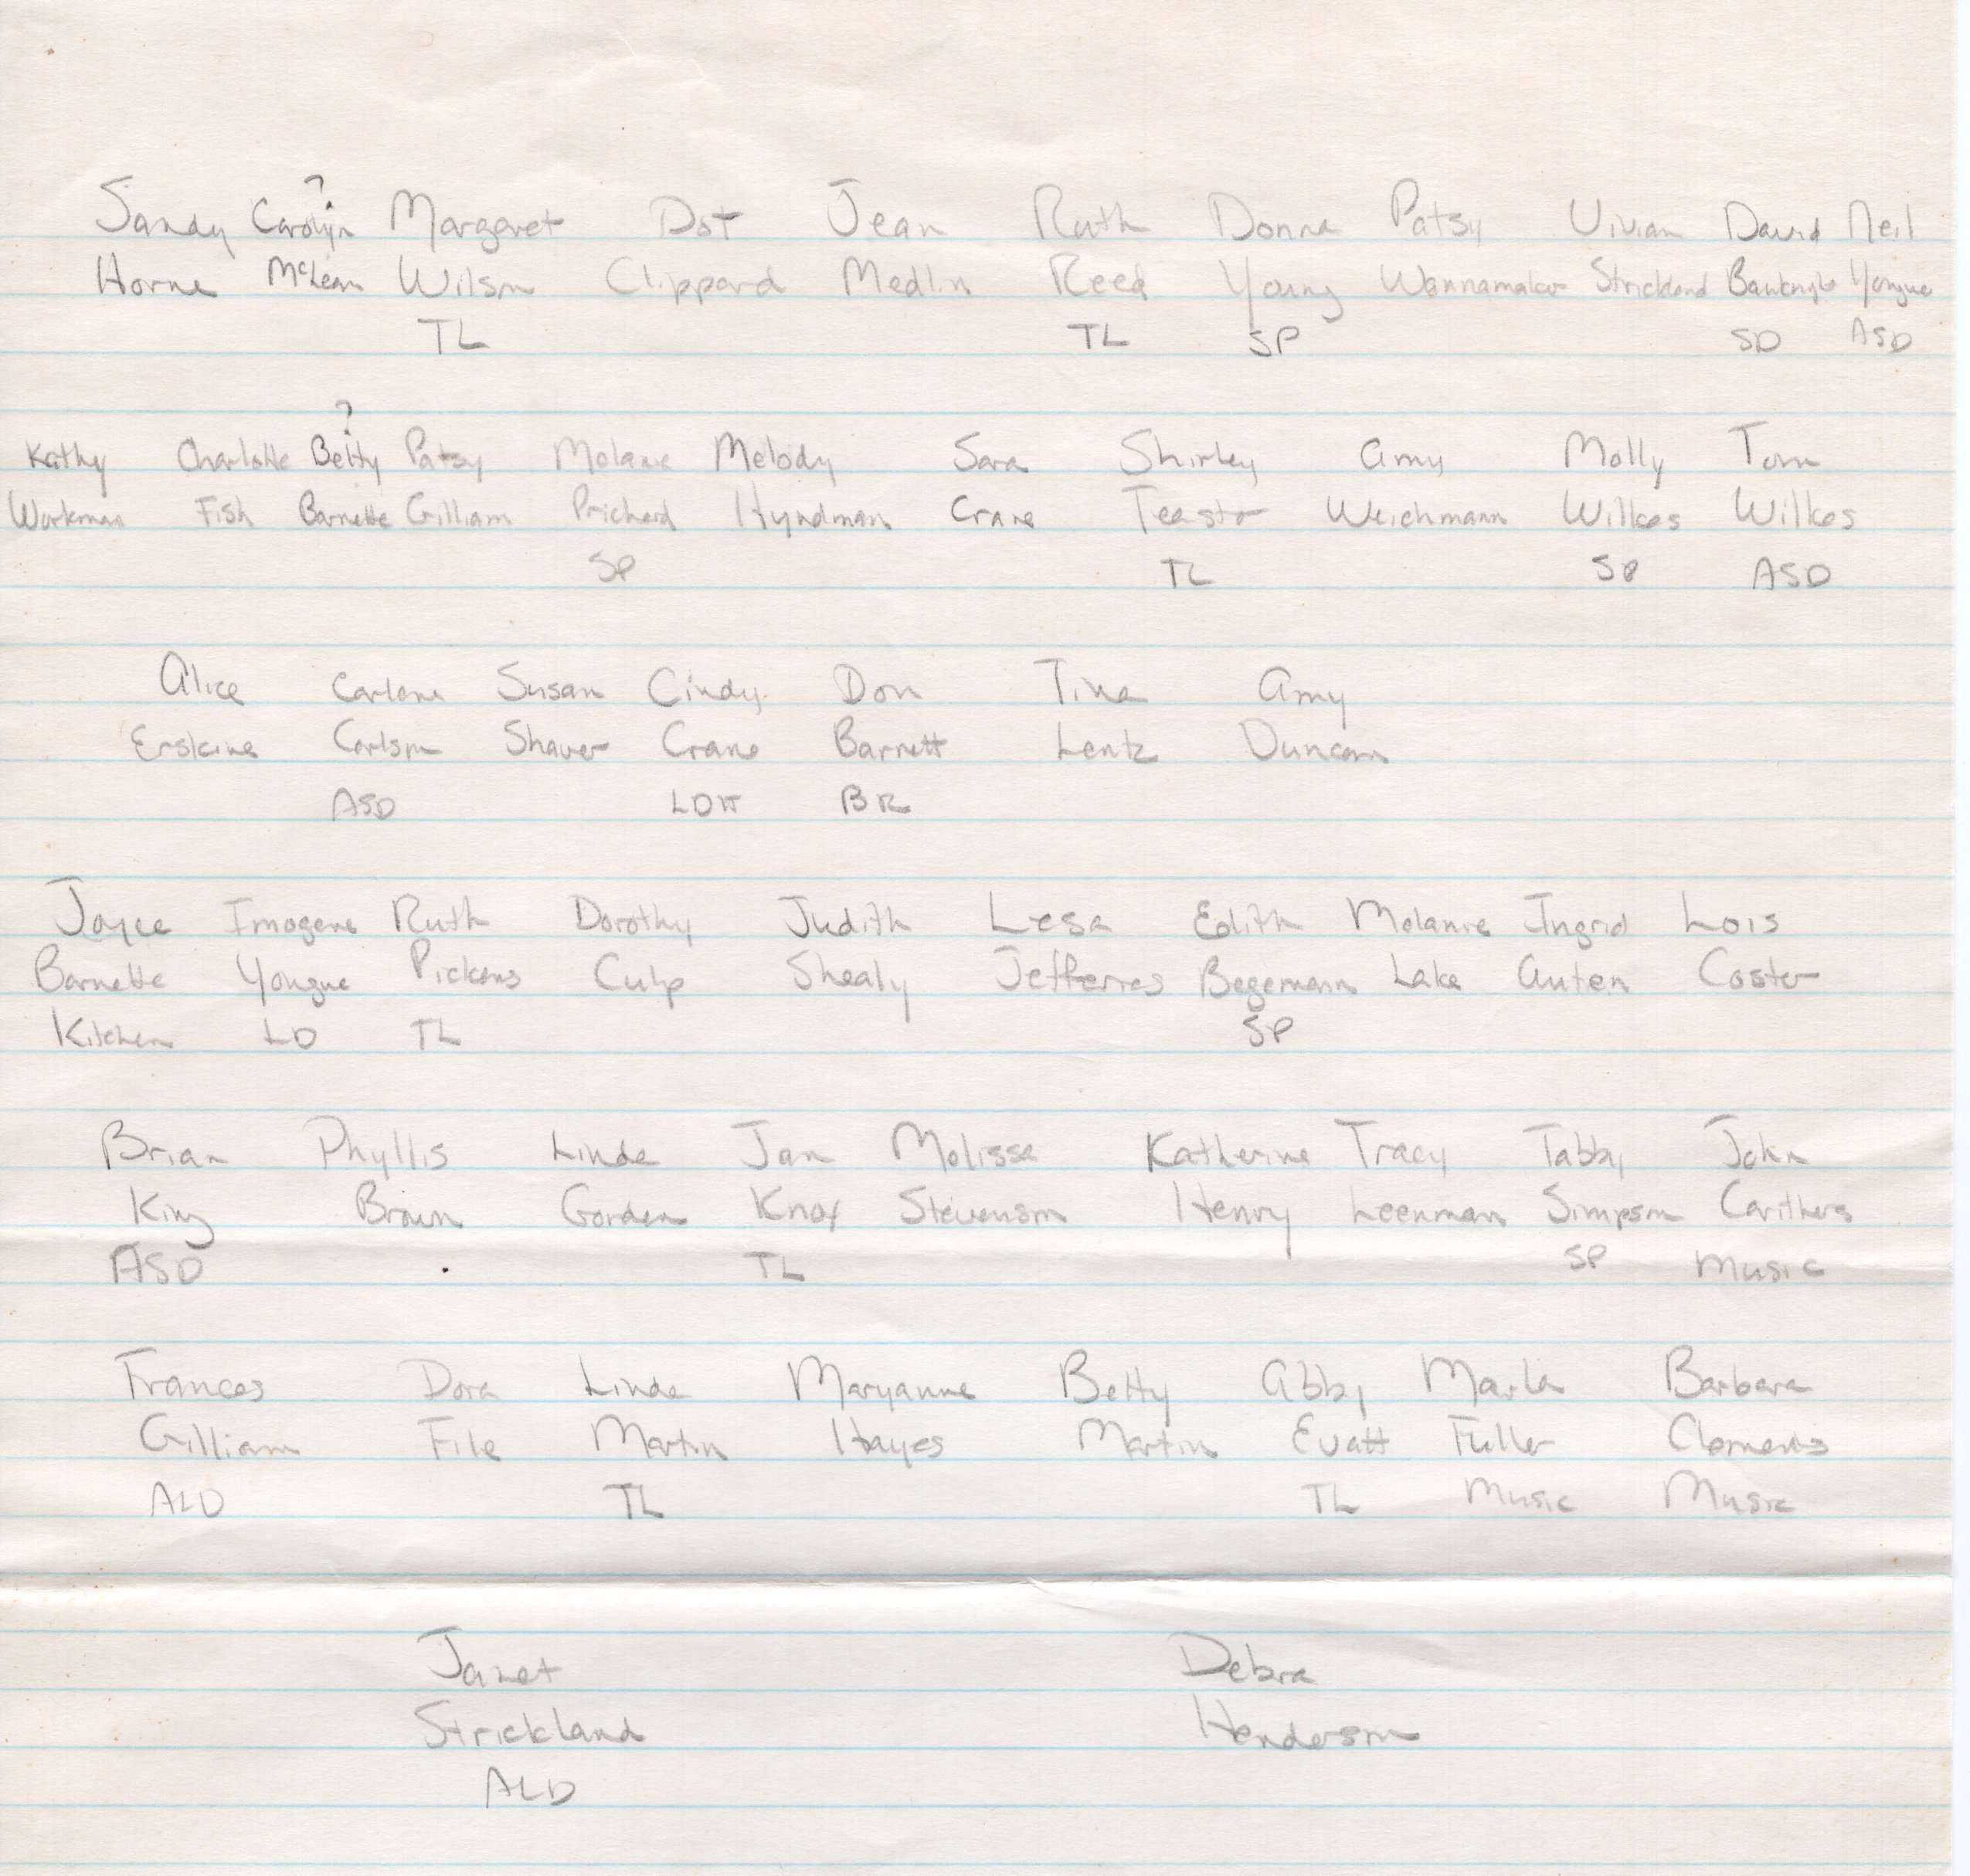 ?
Sandy Carolyn Margaret Dot Jean Ruth Donna Patsy Vivian David Neil
Horne McLean Wilson Clippard Medlin Reed Young Wannamaker Strickland Yongue
TL TL SP SD ASD
?
Kathy Charlotte Betty Patsy Melanie Melody Sara Shirley Amy Molly Tom
Workman Fish Barnette Gilliam Prichard Hyndman Crane Teaster Weichmann Wilkes Wilkes
SP TL SP ASD
Alice Carlene Susan Cindy Don Tina Amy
Erskine Carlson Shaver Crane Barnett Lentz Duncan
ASD BR
Joyce Imogene Ruth Dorothy Judith Lesa Edith Melanie Ingrid Lois
Barnette Yongue Pickens Culp Shealy Jefferies Begemann Lake Auten Coster
Kitchen LD TL SP
Brian Phyllis Linda Jan Melissa Katherine Tracy Tabby John
King Brown Gordon Knox Stevenson Henry Leenman Simpson Carithers
ASD TL SP Music
Frances Dora Linda Maryanne Betty Abby Marla Barbara
Gilliam File Martin Hayes Martin Evatt Fuller Clements
ALD TL TL Music Music
Janet Debra
Strickland Henderson
ALD